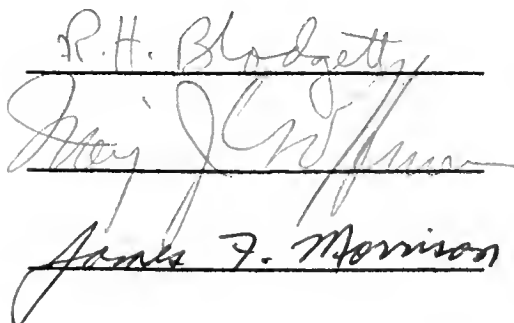 R. H. Blodgett
J.
James F. Morrison